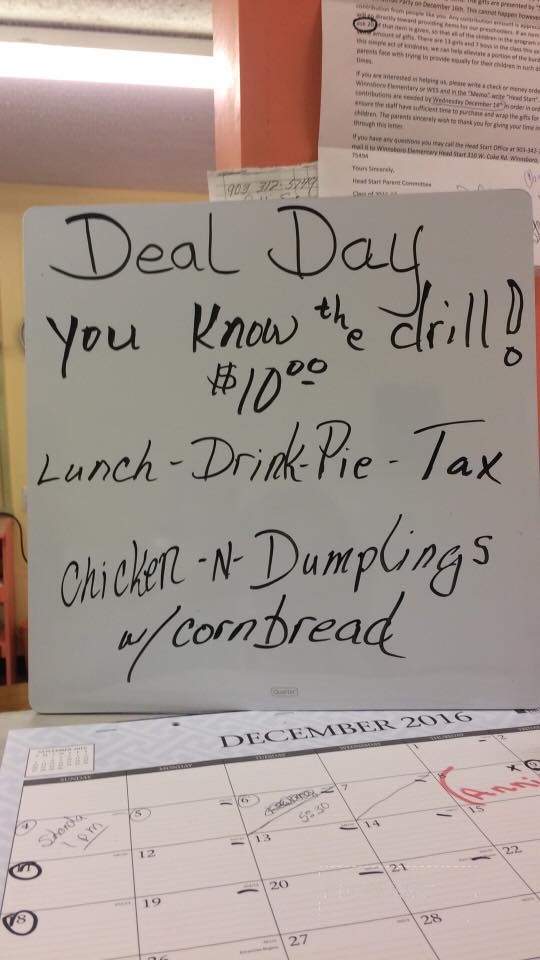 Party on December 16th. This cannot happen however
contribution from people like you. Any contribution amount is
directly toward providing items for our preschoolers. If an
of that item is given, so that all of the children in the program
amount of gifts. There are 13 girls and 7 boys in the class this
this simple act of kindness, we can help alleviate a portion of the
parents face with trying to provide equally for their children in such
times.
If you are interested in helping us, please write a check or money
Winnsboro Elementary or WES and in the "Memo" write "Head Start".
contributions are needed by Wednesday December 14th in order to
ensure the staff have sufficient time to purchase and wrap the gifts for
children. The parents sincerely wish to thank you for giving your time
through this letter.
If you have any questions you may call the Head Start Office at 903-342-
mail it to Winnsboro Elementary Head Start 310 W. Coke Rd. Winnsboro,
75494
Yours Sincerely,
Head Start Parent Committee
Class of
903 312-5749
Deal Day
you Know the drill!
$10.00
Lunch-Drink-Pie-Tax
Chicken-N-Dumplings
w/cornbread
Quartet
DECEMBER 2016
SUNDAY MONDAY TUESDAY WEDNESDAY THURSDAY
1 2
4 5 6 7 8
1 pm
5:30
Anni
12 13 14 15
18 19 20 21 22
27 28